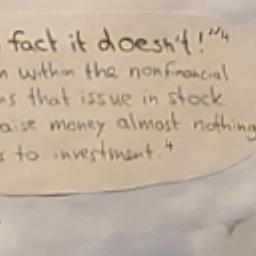 fact it doesn't!"4
n within the nonfinancial
ns that issue in stock
aise money almost nothing
s to investment.4